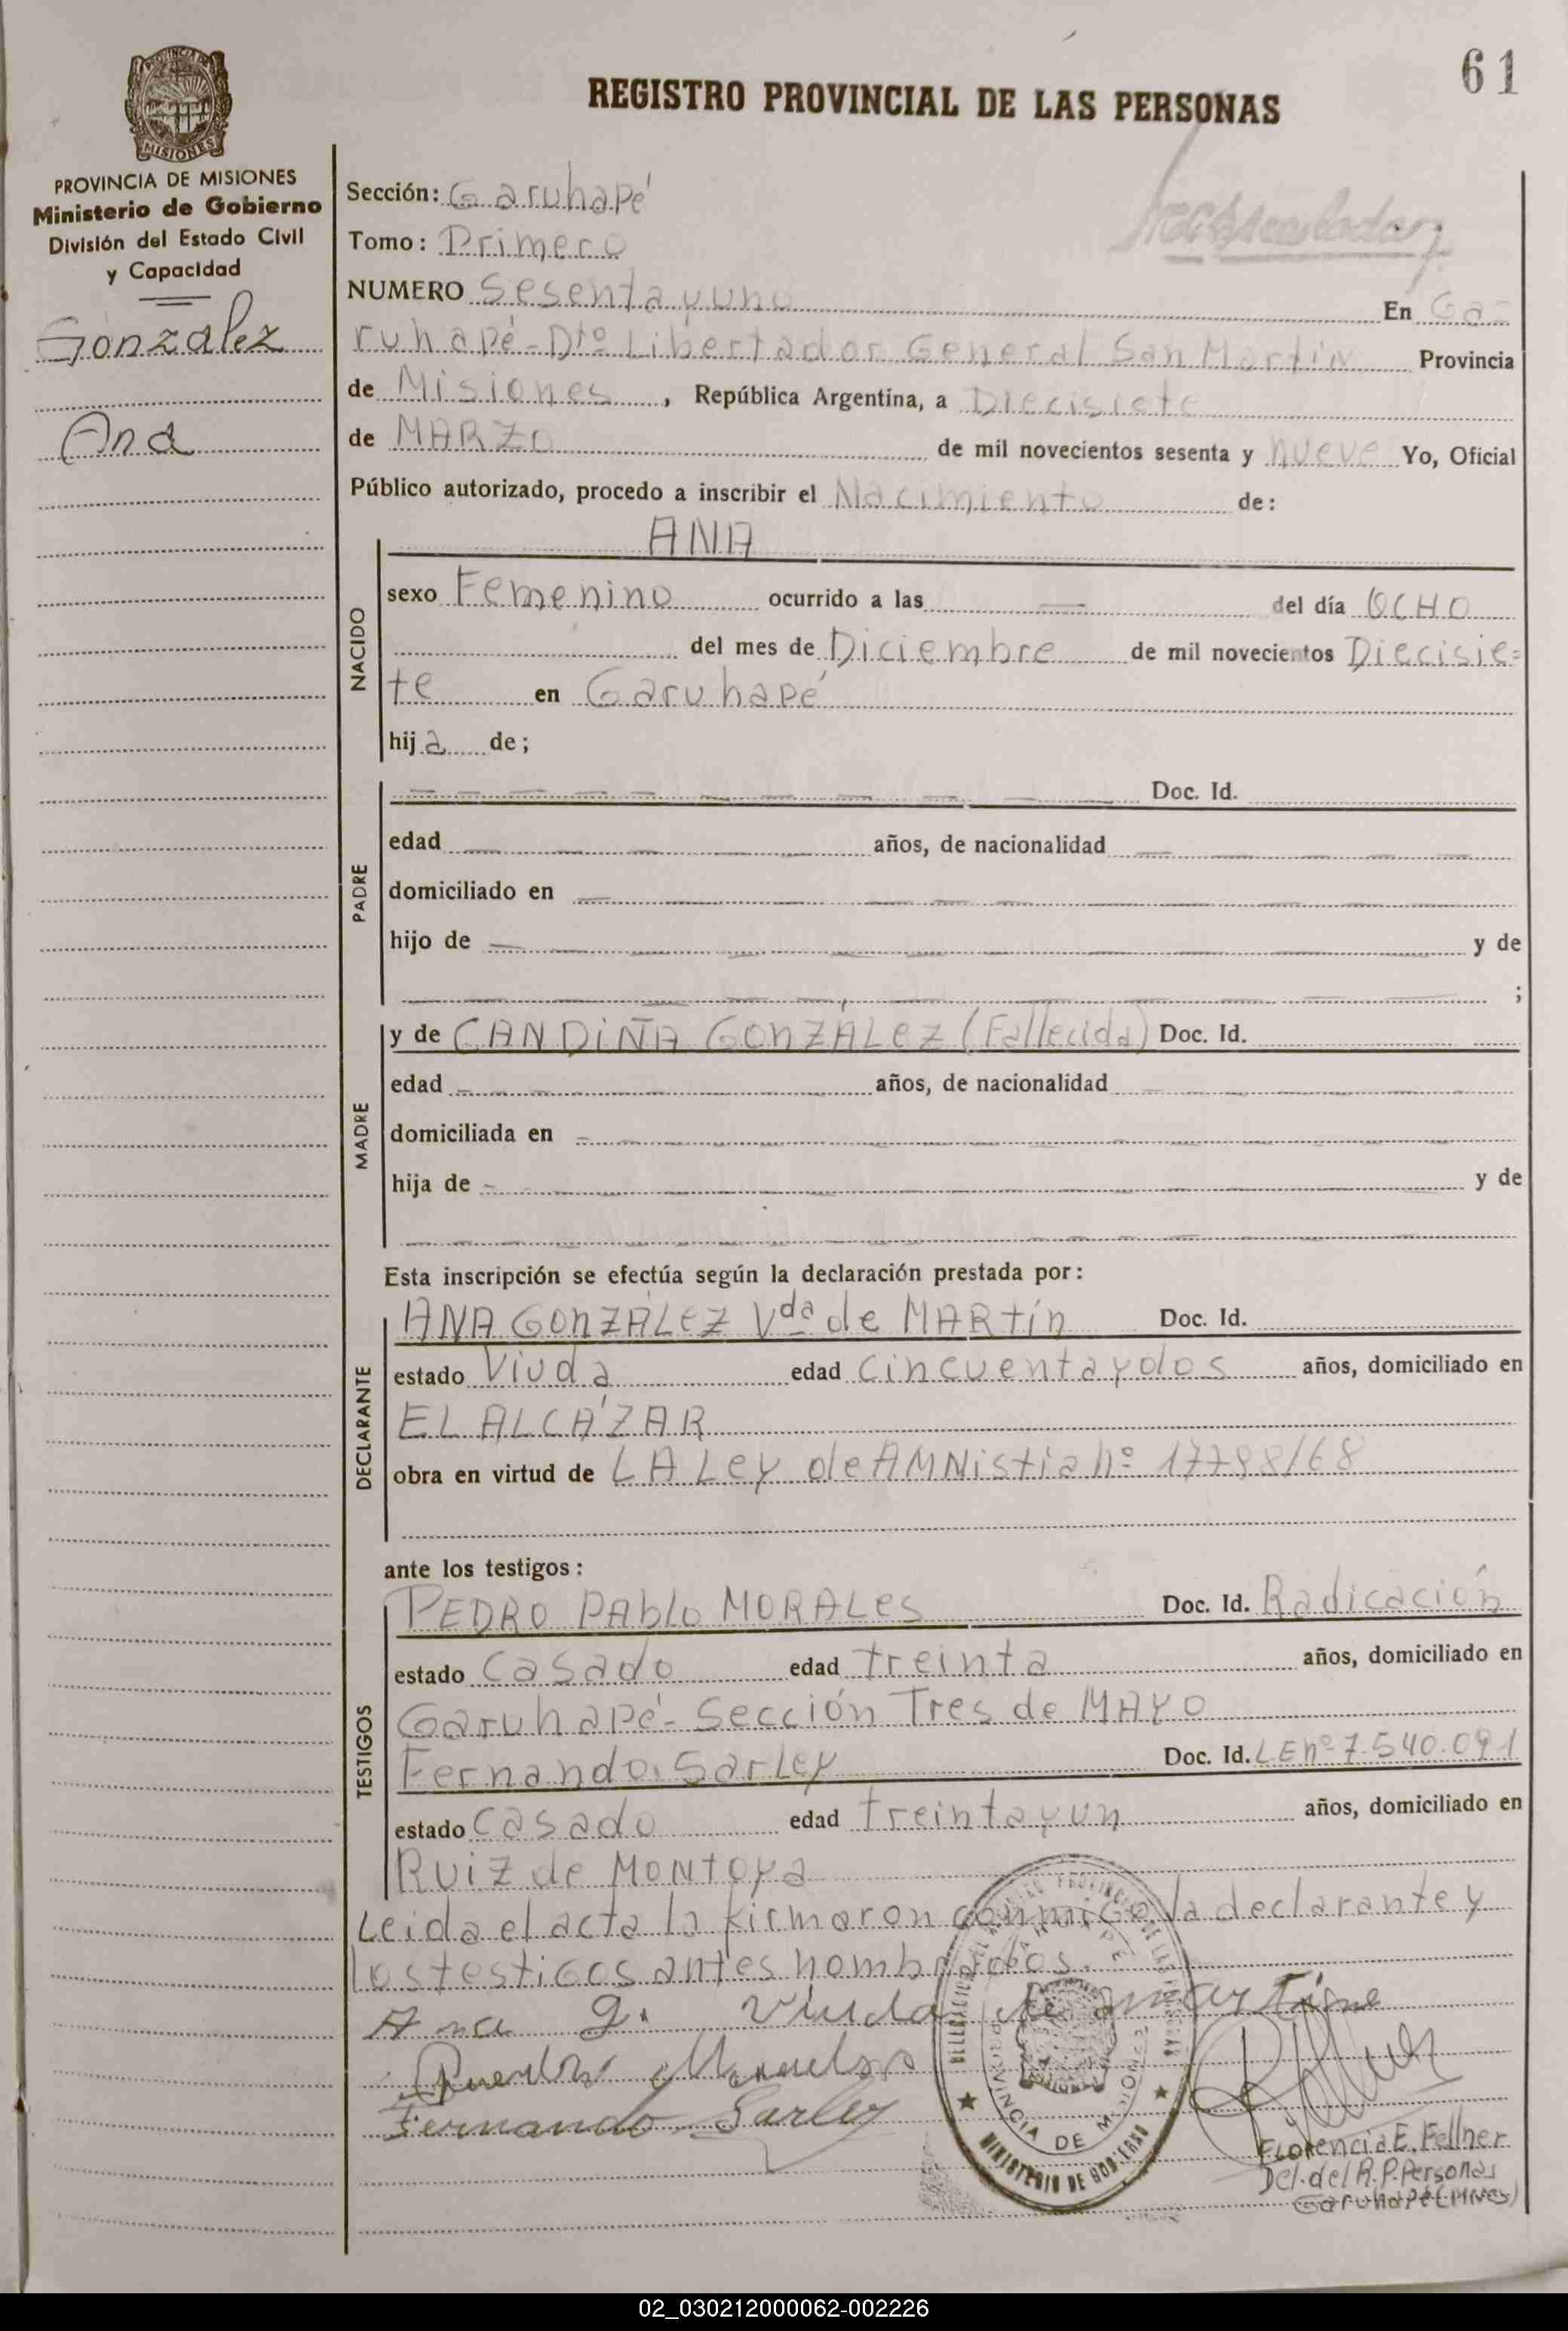 61
REGISTRO PROVINCIAL DE LAS PERSONAS
MISIONES
PROVINCIA DE MISIONES
Ministerio de Gobierno
División del Estado Civil
y Capacidad
González
Ana
Sección: Garuhapé
Tomo: Primero
NUMERO Sesenta y uno En Ga-
ruhapé-Dto Libertador General San Martín Provincia
de Misiones, República Argentina, a Diecisiete
de MARZO de mil novecientos sesenta y nueve Yo, Oficial
Público autorizado, procedo a inscribir el Nacimiento de:
NACIDO
ANA
sexo Femenino ocurrido a las — del día OCHO
del mes de Diciembre de mil novecientos Diecisie=
te en Garuhapé
hija de;
PADRE
Doc. Id.
edad años, de nacionalidad
domiciliado en
hijo de y de
;
MADRE
y de CANDIÑA GONZÁLEZ (Fallecida) Doc. Id.
edad años, de nacionalidad
domiciliada en
hija de y de
Esta inscripción se efectúa según la declaración prestada por:
DECLARANTE
ANA GONZÁLEZ Vda de MARTín Doc. Id.
estado Viuda edad cincuenta y dos años, domiciliado en
EL ALCÁZAR
obra en virtud de LA Ley de AMNistia nº 17798/68
ante los testigos:
TESTIGOS
PEDRO PAbLo MORALES Doc. Id. Radicación
estado Casado edad treinta años, domiciliado en
Garuhapé- Sección Tres de MAYO
Fernando Sarley Doc. Id. LE nº 7.540.091
estado Casado edad treinta y un años, domiciliado en
Ruiz de MONtoya
Leida el acta la firmaron conmigo la declarante y
los testigos antes nombrados.
Ana G. Viuda de Martine
Fernando Sarley
PROVINCIA DE MISIONES
MINISTERIO DE GOBIERNO
Florencia E. Fellner
Del. del R.P. Personas
Garuhapé (MNes)
02_030212000062-002226